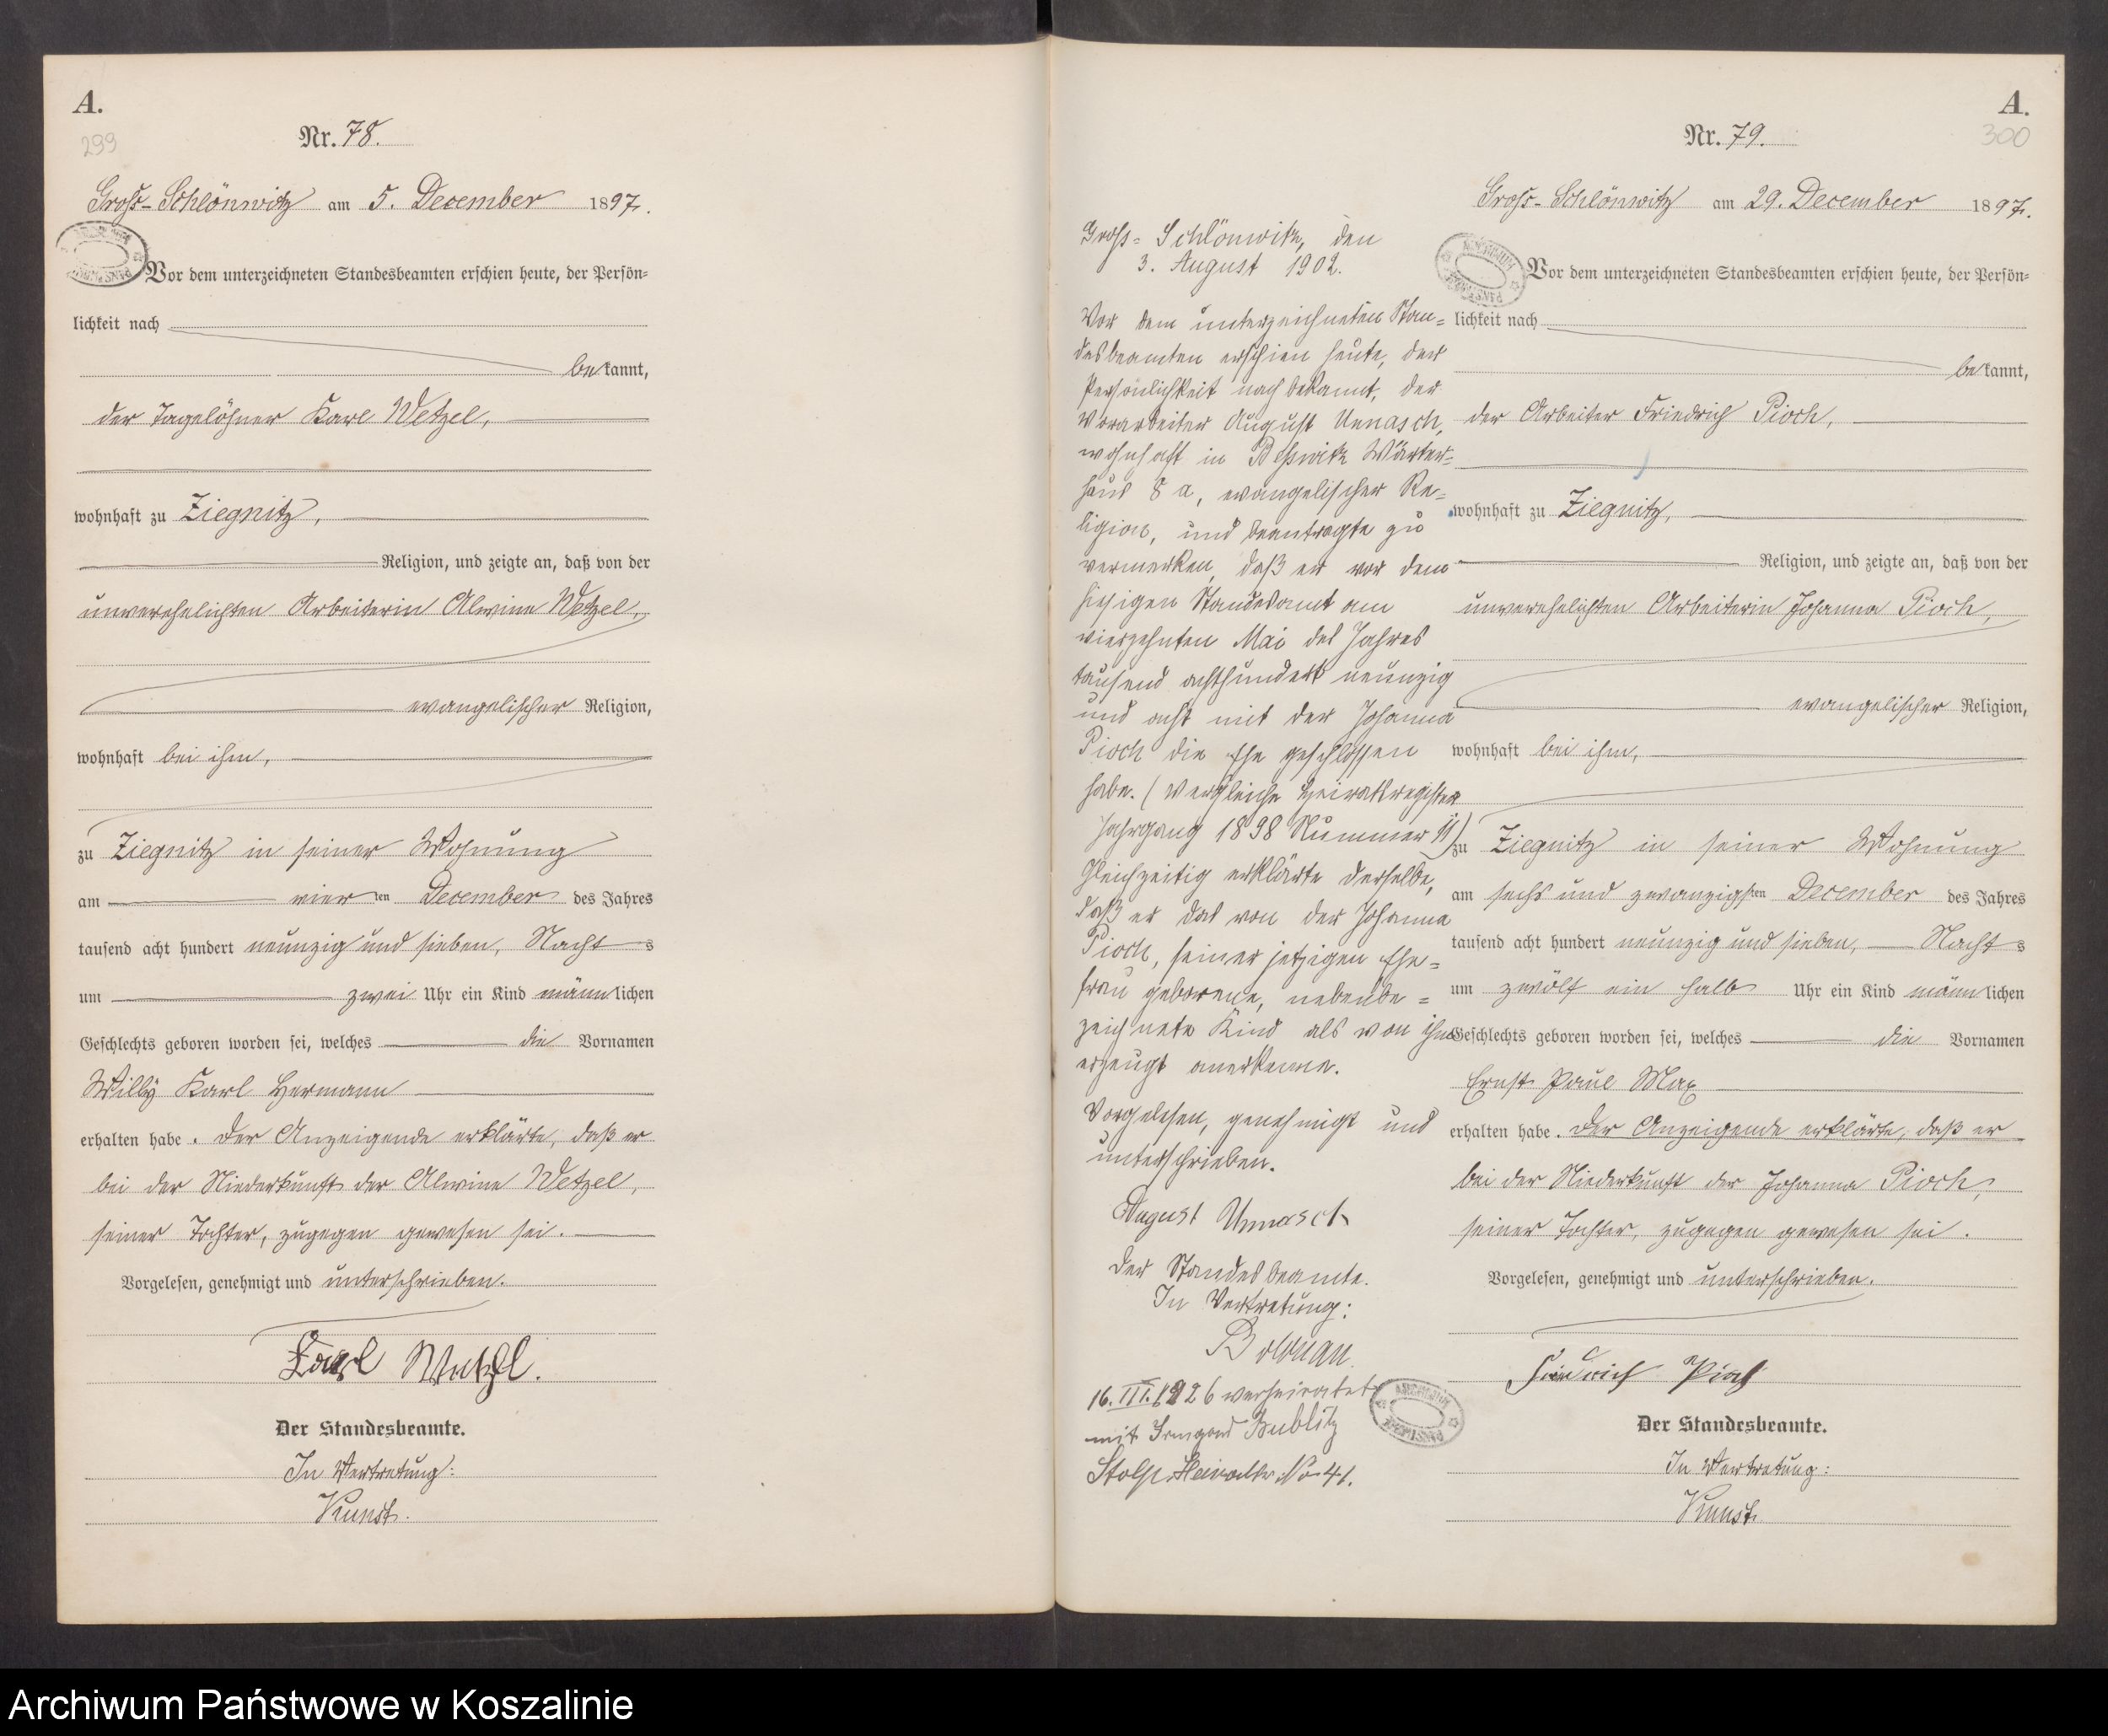 A.
299
Nr. 78.
Groß-Schlönwitz am 5. December 1897.
Vor dem unterzeichneten Standesbeamten erschien heute, der Persön=
lichkeit nach
bekannt,
der Tagelöhner Karl Wetzel,
wohnhaft zu Ziegnitz,
Religion, und zeigte an, daß von der
unverehelichten Arbeiterin Alwine Wetzel,
evangelischer Religion,
wohnhaft bei ihm,
zu Ziegnitz in seiner Wohnung
am vierten December des Jahres
tausend acht hundert neunzig und sieben, Nachts
um zwei Uhr ein Kind männlichen
Geschlechts geboren worden sei, welches die Vornamen
Willy Karl Hermann
erhalten habe. Der Anzeigende erklärte, daß er
bei der Niederkunft der Alwine Wetzel,
seiner Tochter, zugegen gewesen sei.
Vorgelesen, genehmigt und unterschrieben.
Karl Wetzel.
Der Standesbeamte.
In Vertretung:
Kunst.
Groß=Schlönwitz, den
3. August 1902.
Vor dem unterzeichneten Stan=
desbeamten erschien heute, der
Persönlichkeit nach bekannt, der
Vorarbeiter August Unnasch,
wohnhaft in Beßwitz Wärter=
haus 8 a, evangelischer Re=
ligion, und beantragte zu
vermerken, daß er vor dem
hiesigen Standesamt am
vierzehnten Mai des Jahres
tausend achthundert neunzig
und acht mit der Johanna
Pioch die Ehe geschlossen
habe. (Vergleiche Heiratsregister
Jahrgang 1898 Nummer 11)
Gleichzeitig erklärte derselbe,
daß er das von der Johanna
Pioch, seiner jetzigen Ehe=
frau geborene, nebenbe=
zeichnete Kind als von ihm
erzeugt anerkenne.
Vorgelesen, genehmigt und
unterschrieben.
August Unnasch
Der Standesbeamte.
In Vertretung:
16. III. 1926 verheiratet
mit Irmgard Bublitz
Stolp Heiratsr. No 41.
A.
300
Nr. 79.
Groß-Schlönwitz am 29. December 1897.
Vor dem unterzeichneten Standesbeamten erschien heute, der Persön=
lichkeit nach
bekannt,
der Arbeiter Friedrich Pioch,
wohnhaft zu Ziegnitz,
Religion, und zeigte an, daß von der
unverehelichten Arbeiterin Johanna Pioch,
evangelischer Religion,
wohnhaft bei ihm,
zu Ziegnitz in seiner Wohnung
am sechs und zwanzigsten December des Jahres
tausend acht hundert neunzig und sieben, Nachts
um zwölf ein halb Uhr ein Kind männlichen
Geschlechts geboren worden sei, welches die Vornamen
Ernst Paul Max
erhalten habe. Der Anzeigende erklärte, daß er
bei der Niederkunft der Johanna Pioch,
seiner Tochter, zugegen gewesen sei.
Vorgelesen, genehmigt und unterschrieben.
Friedrich Pioch
Der Standesbeamte.
In Vertretung:
Kunst.
Archiwum Państwowe w Koszalinie